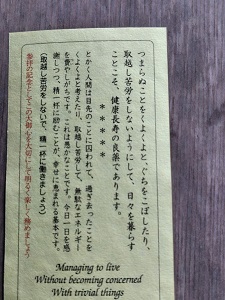 つまらぬことをくよくよと、ぐちをこぼしたり、
取越し苦労をしないようにして、日々を暮らす
ことこそ、健康長寿の良薬であります。
＊＊＊＊＊
とかく人間は目先のことに囚われて、過ぎ去ったことを
くよくよと考えたり、取越し苦労をして、無駄なエネルギー
を費やしがちです。これは愚かなことです。今日一日を感
謝しつつ、精一杯に励むことが、幸せに恵まれる基本です。
（取越し苦労をしないで、精一杯に働きましょう）
参拝の記念としてこの大御心を大切にして明るく楽しく務めましょう
Managing to live
Without becoming concerned
With trivial things